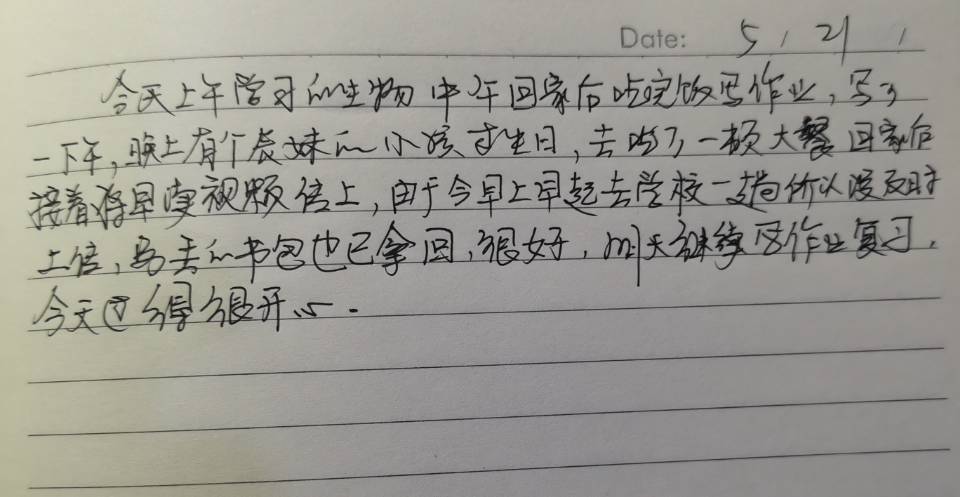 Date: 5 / 21 /
今天上午学习的生物中午回家后吃完饭写作业,写了
一下午,晚上有个表妹的小孩过生日,去吃了一顿大餐回家后
接着将早读视频传上,由于今早上早起去学校一趟所以没及时
上传,丢的书包也已拿回,很好,明天继续写作业复习,
今天过得很开心.